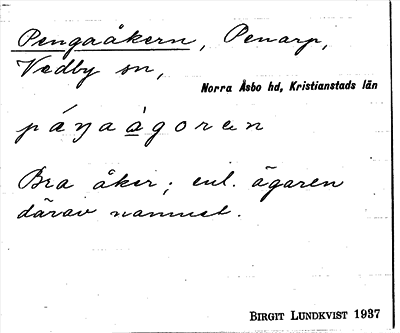 Pengaåkern, Penarp,
Vedby sn,
Norra Åsbo hd, Kristianstads län
Bra åker; enl. ägaren
därav namnet.
BIRGIT LUNDKVIST 1937